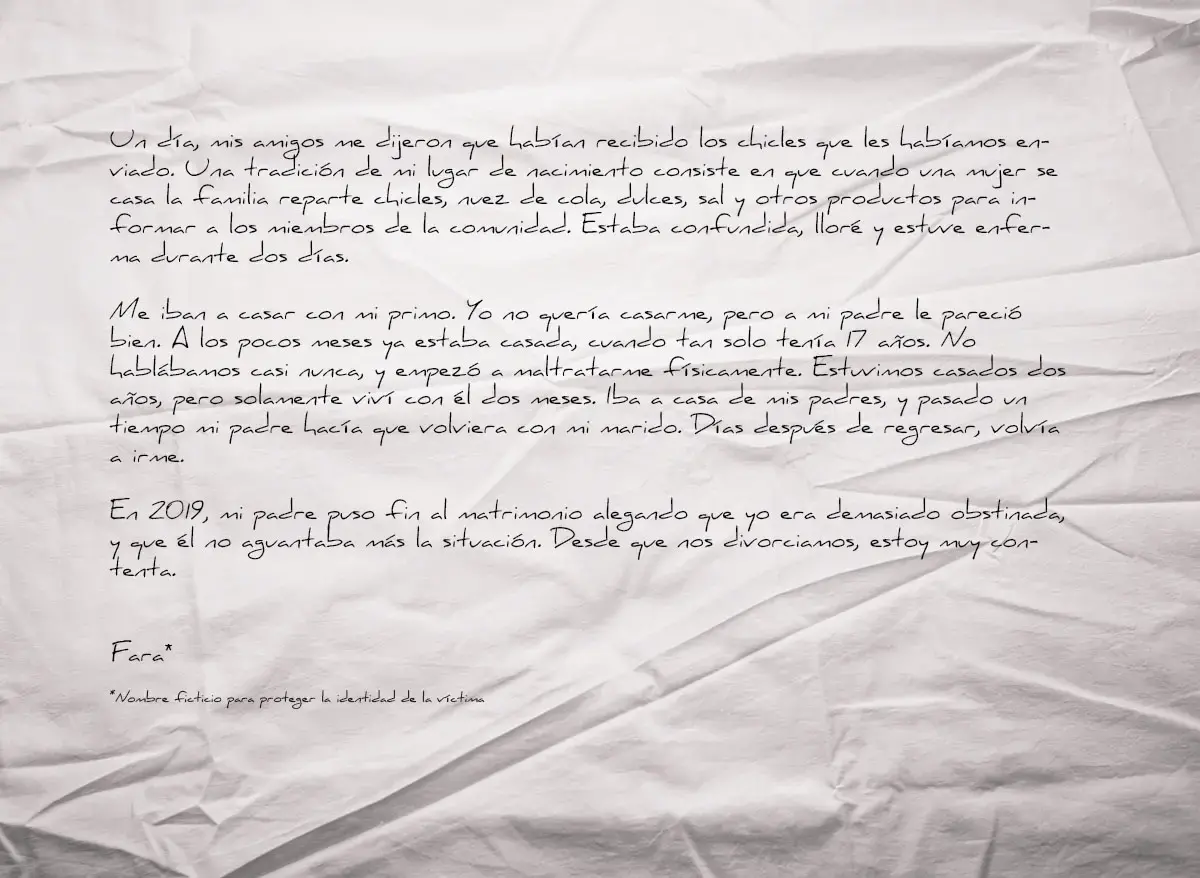 Un día, mis amigos me dijeron que habían recibido los chicles que les habíamos en-
viado. Una tradición de mi lugar de nacimiento consiste en que cuando una mujer se
casa la familia reparte chicles, nuez de cola, dulces, sal y otros productos para in-
formar a los miembros de la comunidad. Estaba confundida, lloré y estuve enfer-
ma durante dos días.
Me iban a casar con mi primo. Yo no quería casarme, pero a mi padre le pareció
bien. A los pocos meses ya estaba casada, cuando tan solo tenía 17 años. No
hablábamos casi nunca, y empezó a maltratarme físicamente. Estuvimos casados dos
años, pero solamente viví con él dos meses. Iba a casa de mis padres, y pasado un
tiempo mi padre hacía que volviera con mi marido. Días después de regresar, volvía
a irme.
En 2019, mi padre puso fin al matrimonio alegando que yo era demasiado obstinada,
y que él no aguantaba más la situación. Desde que nos divorciamos, estoy muy con-
tenta.
Fara*
*Nombre ficticio para proteger la identidad de la víctima